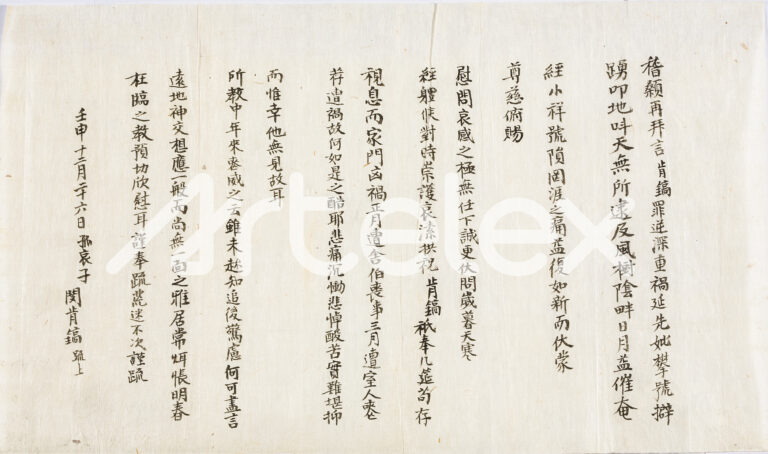 稽顙再拜言 肯鎬罪逆深重禍延先妣攀號擗
踴叩地叫天無所逮及風樹陰畔日月益催奄
經小祥號隕罔涯之痛益復如新而伏蒙
尊慈俯賜
慰問哀感之極無任下誠更伏問歲暮天寒
經體候對時崇護哀溸拱祝 肯鎬祇奉几筵苟存
視息而家門凶禍正月遭舍伯喪事三月遭室人喪亡
荐遭禍故何如是之酷耶悲痛沉慟悲悼酸苦實難堪抑
而惟幸他無見故耳
所敎中年來 威之 雖未趁知追後驚慮何可盡言
遠地神交想應一般而尚無一面之雅居常炯悵明春
枉臨之敎預切欣慰耳謹奉疏荒迷不次謹疏
壬申十二月二十六日 孤哀子 閔肯鎬 疏上
Artelex